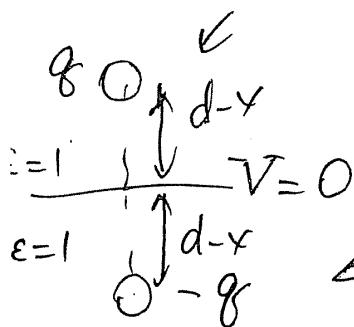 q
d-x
ε=1
V=0
ε=1
d-x
-q